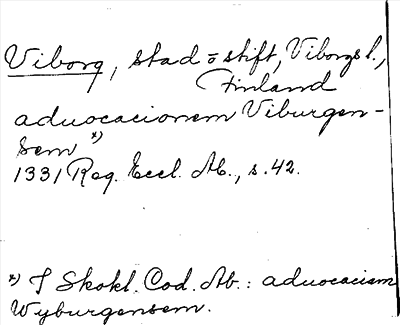 Viborg, stad o stift, Viborgs l.,
Finland
aduocacionem Viburgen-
sem *)
1331 Reg. Eccl. Ab., s. 42.
*) I Skokl. Cod. Ab.: aduocaciam
Wyburgensem.